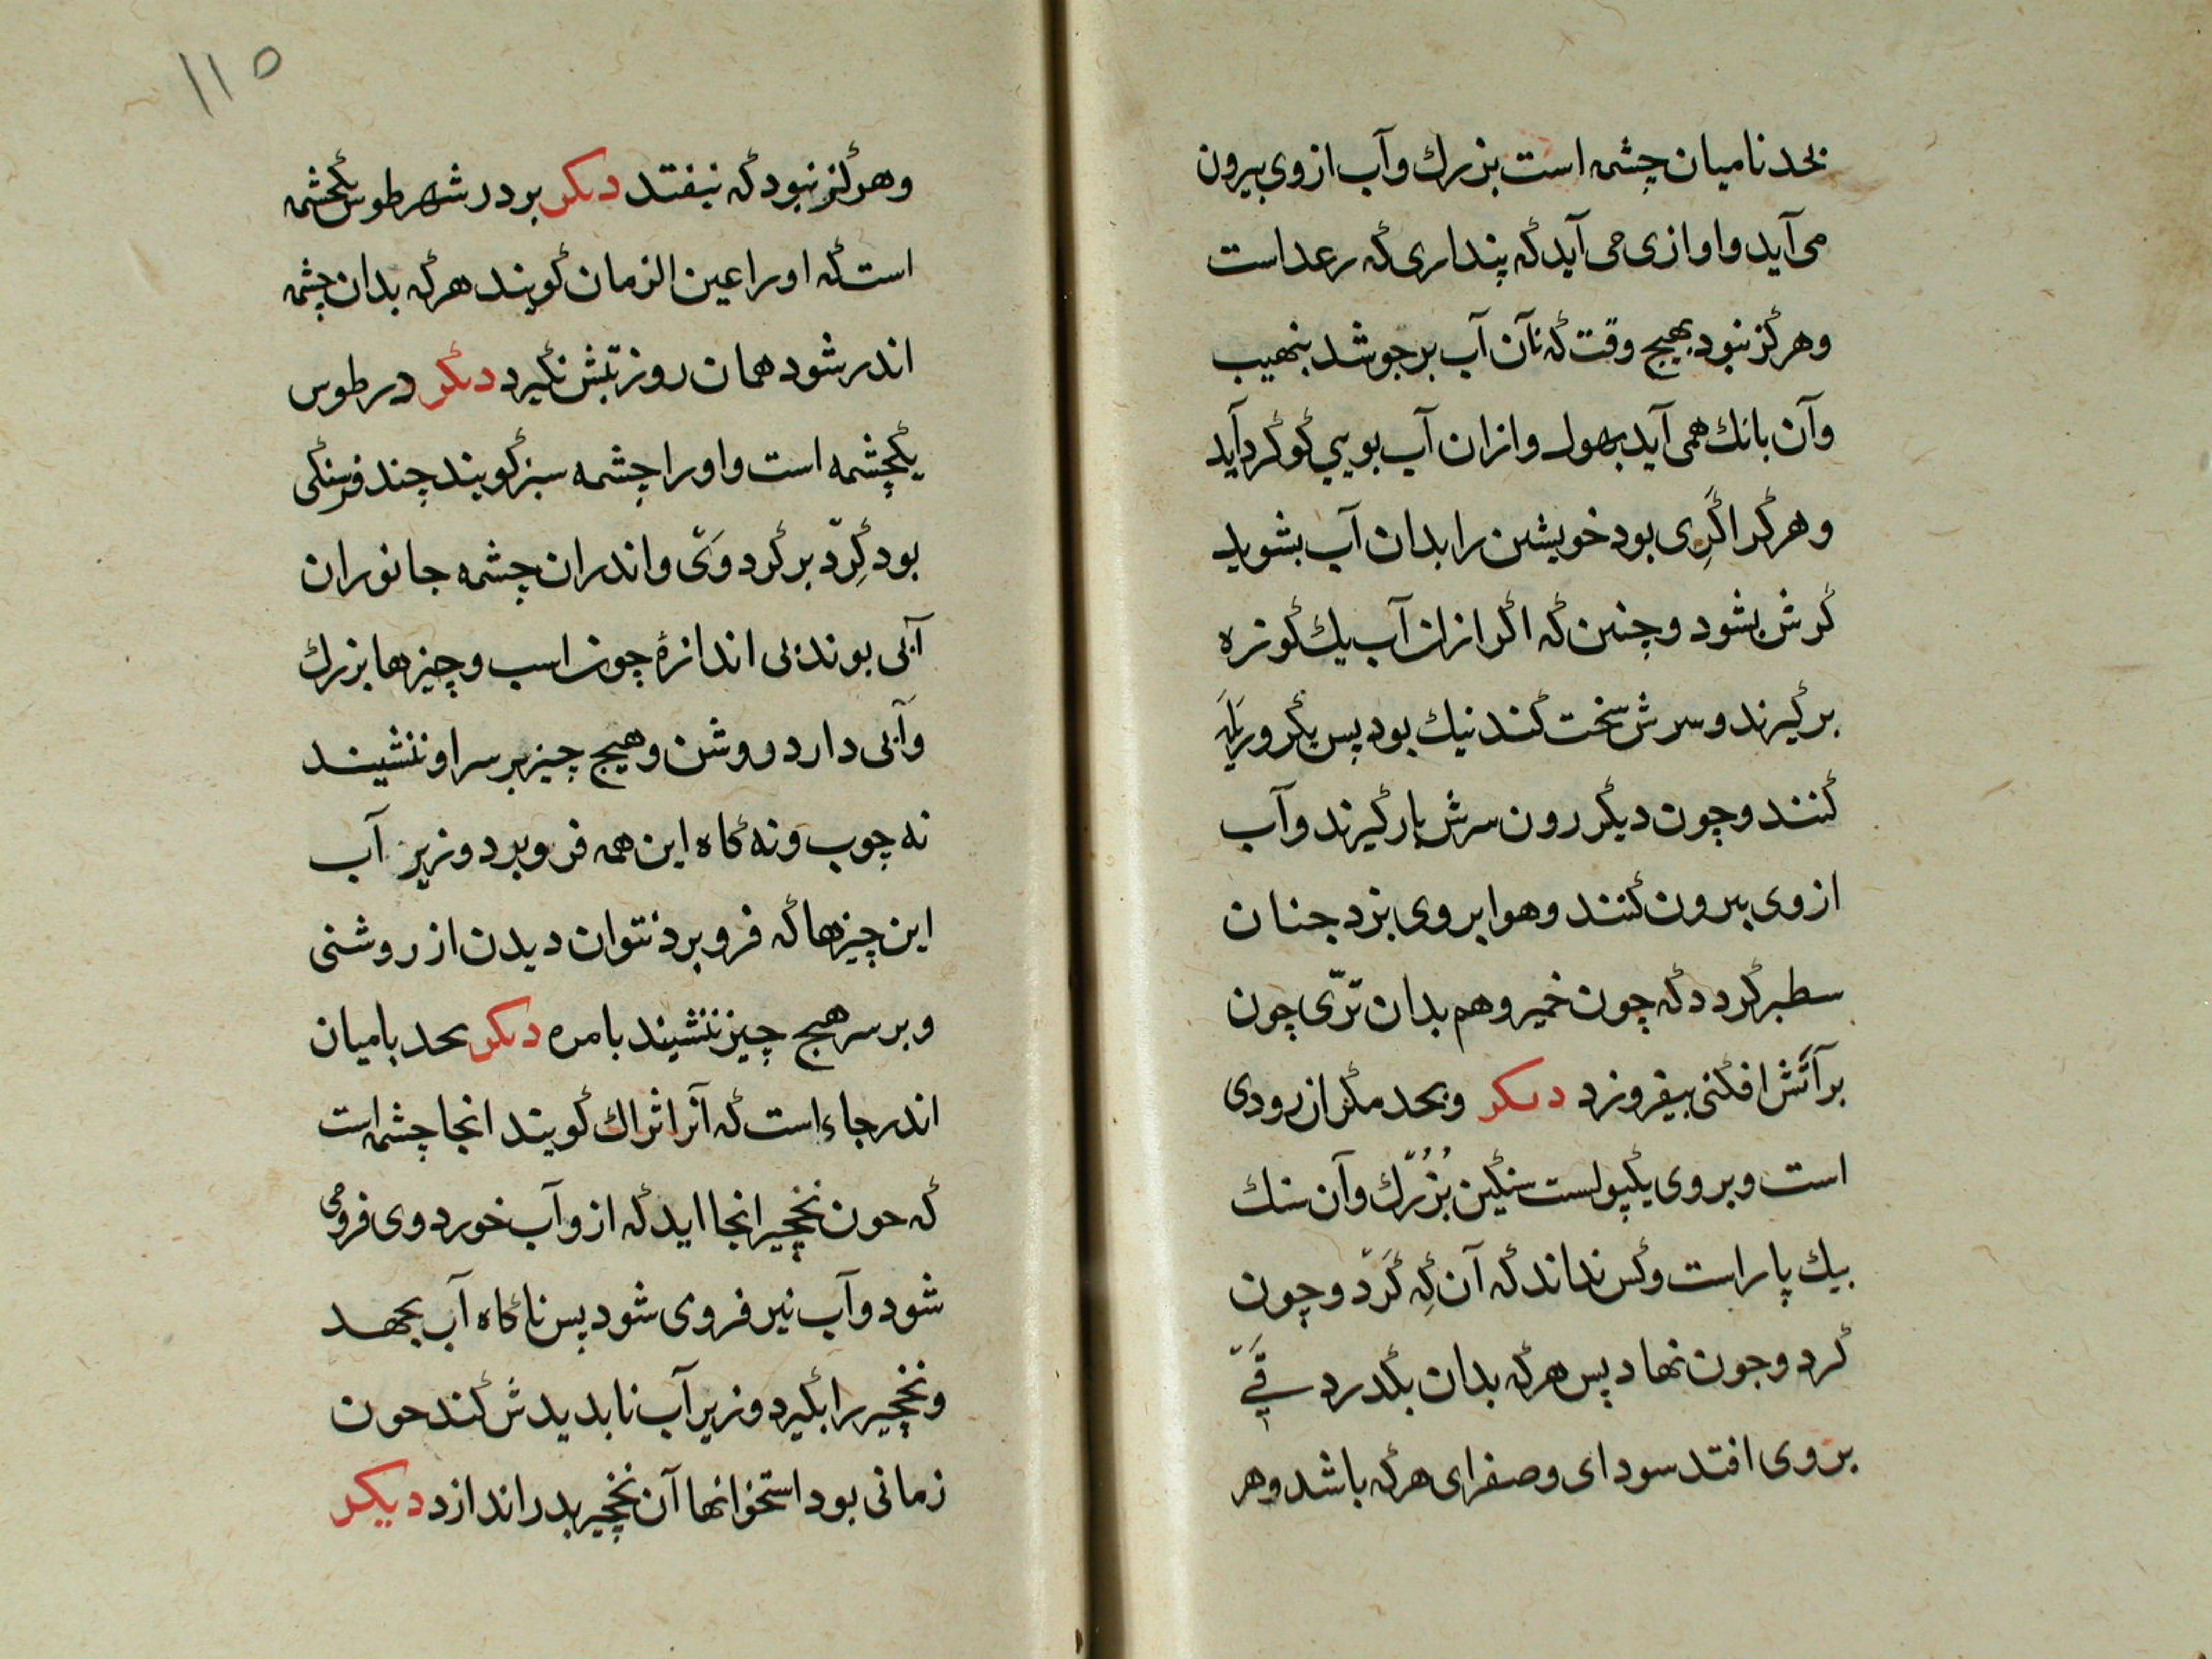 بحد نامیان چشمه است بزرك وآب ازوی بیرون
می آید واوازی می آید که پنداری که رعد است
وهرکز نبود بهیچ وقت که نآن آب برجوشد بنهیب
وآن بانك همی آید بهول وازان آب بویی کوکرد آید
وهرکرا کری بود خویشتن را بدان آب بشوید
کرش بشود وچنین که اکر ازان آب یك کوزه
برکیرند وسرش سخت کنند نیك بود پس یکروز
کنند وچون دیکر روز سرش بازکیرند وآب
ازوی بیرون کنند وهوا بروی بزد جنان
سطبر کردد که چون خمیر وهم بدان تری چون
برآتش افکنی بیفروزد دیکر وبحد مکران رودی
است وبروی یکپولست سنکین بزرك وآن سنك
بیك پاره است وکس نداند که آن که کرد وچون
کرد وجون نهاد پس هرکه بدان بکدرد قی
بروی افتد سودای وصفرای هرکه باشد وهر
۱۱۵
وهرکز نبود که نیفتد دیکر بر در شهر طوس یکچشمه
است که اورا عین الزمان کویند هرکه بدان چشمه
اندر شود همان روز تبش نکیرد دیکر در طوس
یکچشمه است واورا چشمه سبز کویند چند فرسنکی
بود کرد برکرد وی واندران چشمه جانوران
آبی بوند بی اندازۀ چون اسب وچیزها بزرك
وآبی دارد روشن وهیچ چیز بر سر او ننشیند
نه چوب ونه کاه این همه فروبرد وزیر آب
این چیزها که فروبرد نتوان دیدن از روشنی
وبر سر هیچ چیز ننشیند بامره دیکر بحد بامیان
اندر جاء است که آنرا ثراك کویند انجا چشمه است
که حون نخچیر انجا اید که ازو آب خورد وی فرو می
شود وآب نیز فروی شود پس ناکاه آب بجهد
ونخچیر را بکیرد وزیر آب نابدیدش کند حون
زمانی بود استخوانها آن نخچیر بدر اندازد دیکر